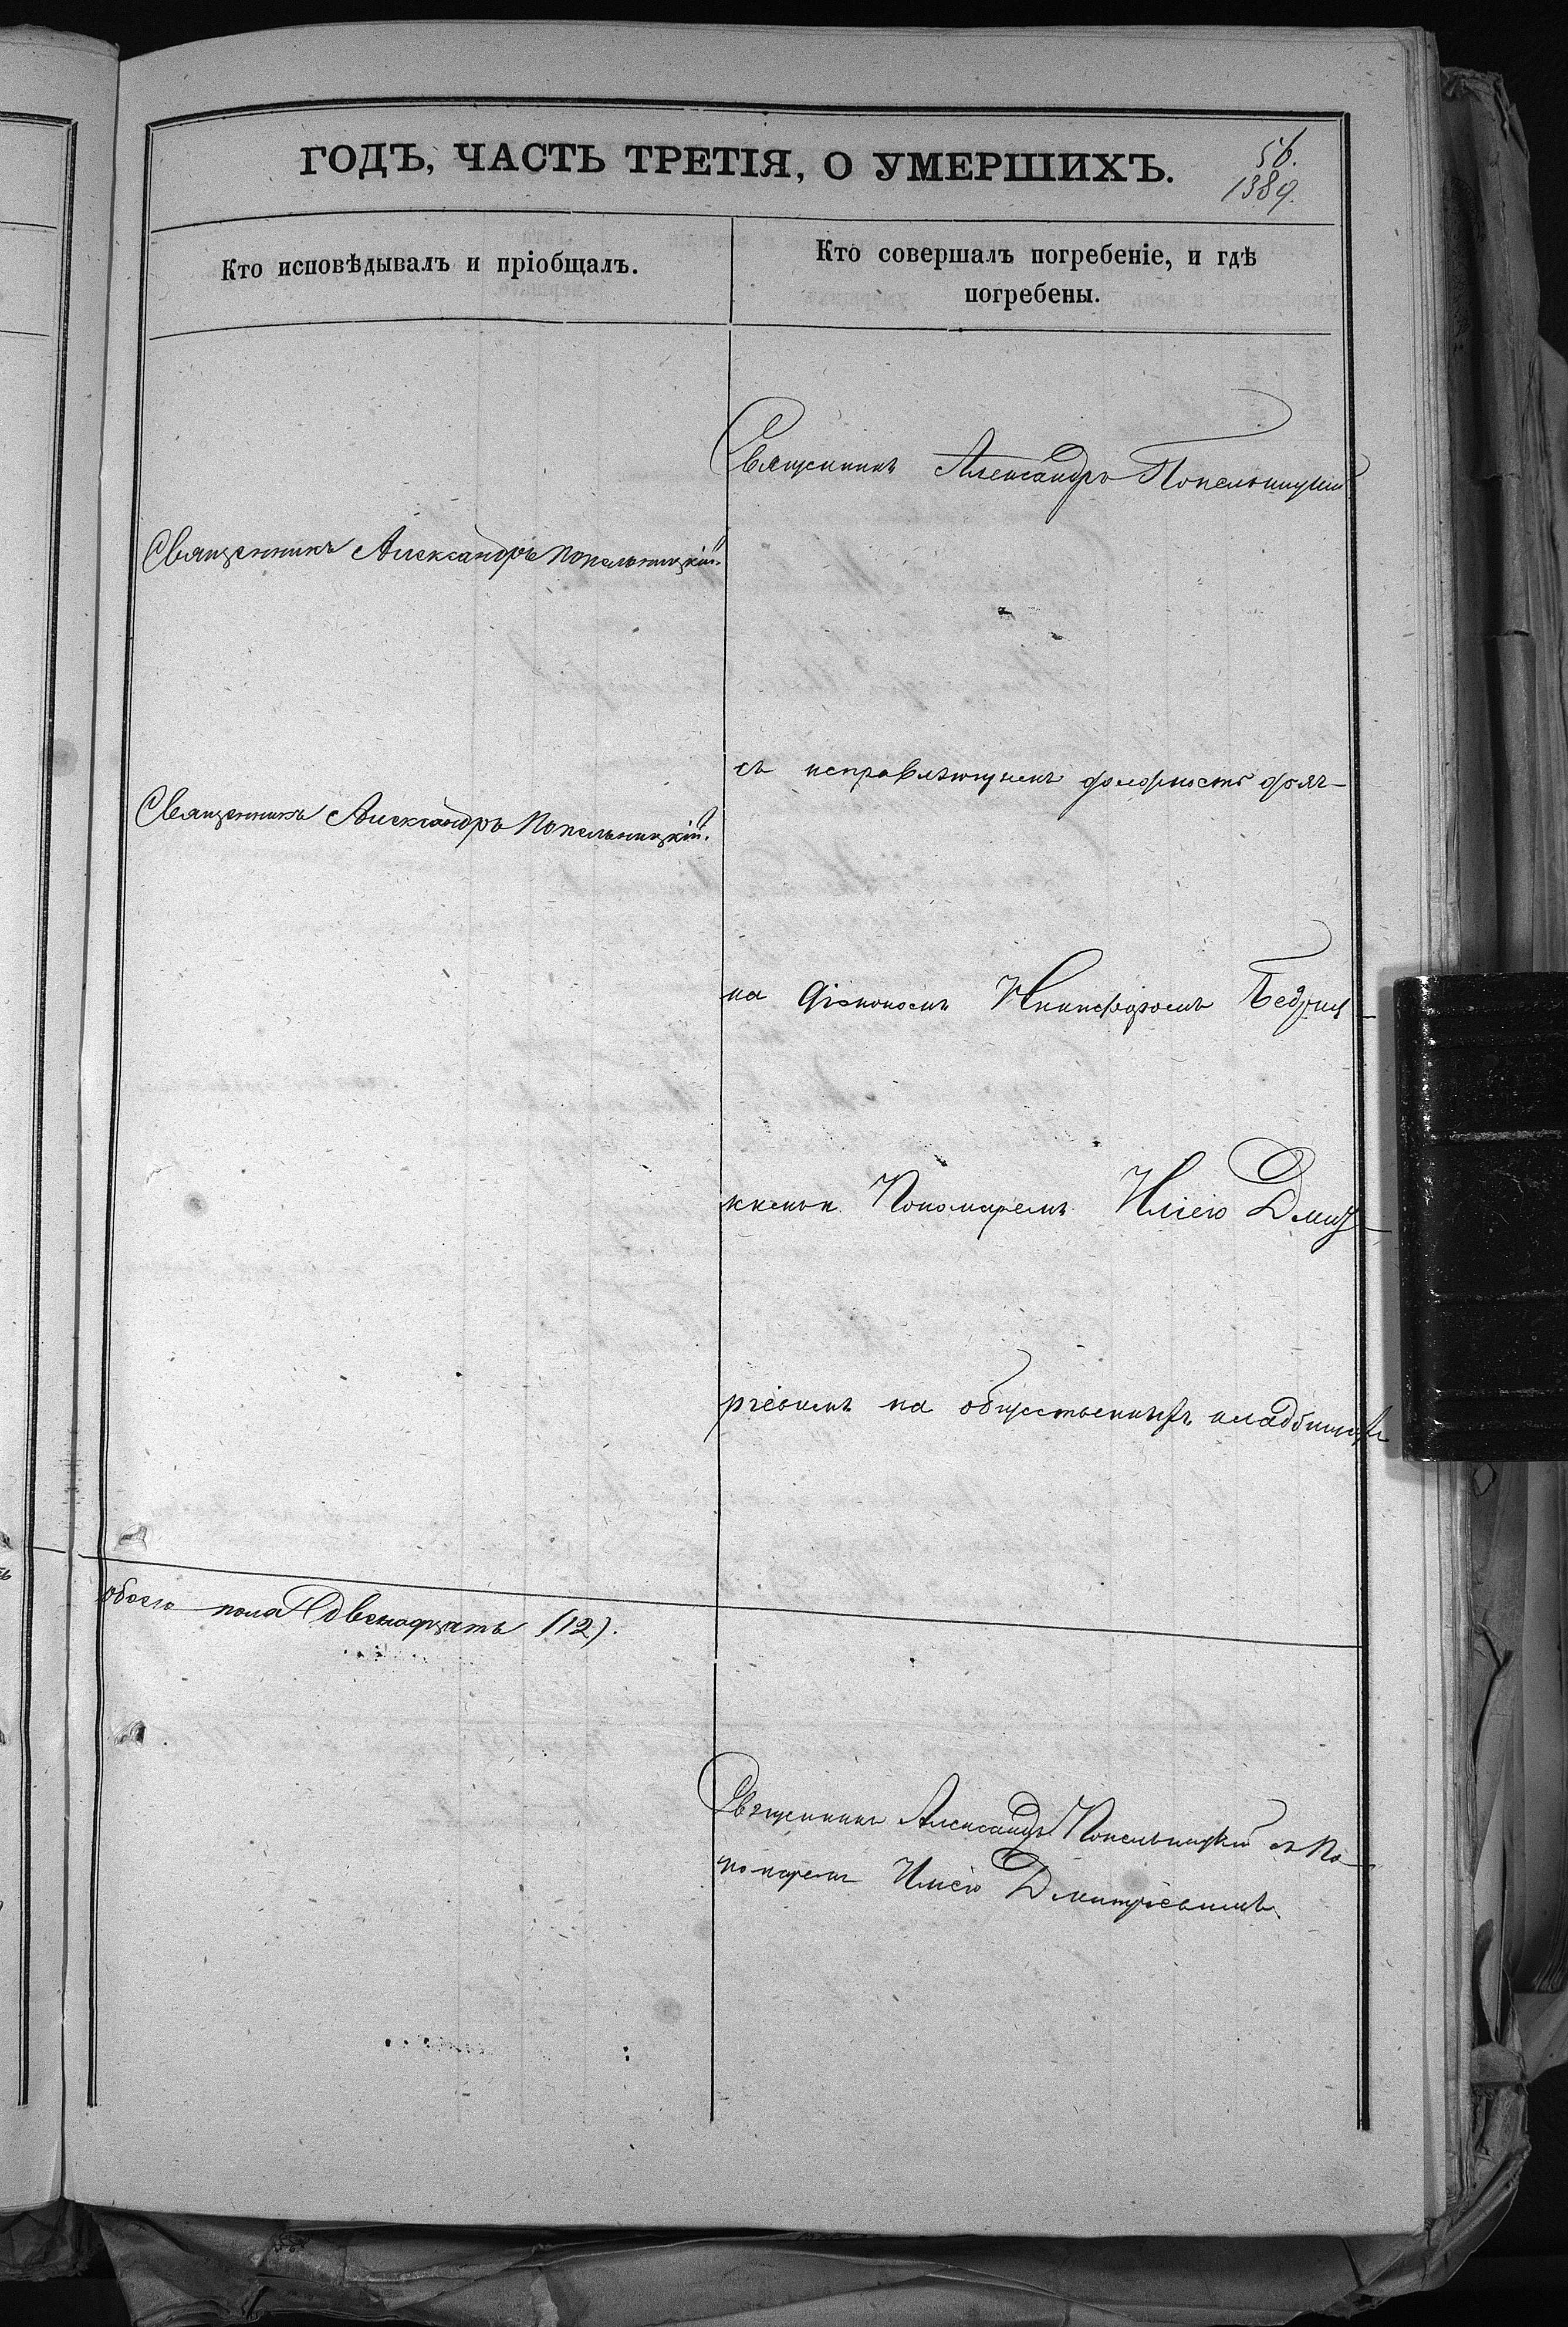 ГОДЪ, ЧАСТЬ ТРЕТІЯ, О УМЕРШИХЪ.
56.
1389.
Кто исповѣдывалъ и пріобщалъ.
Кто совершалъ погребеніе, и гдѣ
погребены.
Священникъ Александръ Попельницкій.
Священникъ Александръ Попельницкій.
обоего пола двенадцать (12).
Священникъ Александръ Попельницкій
съ исправляющемъ должность дьяч-
ка Діякономъ Никифоромъ
Пономаремъ Иліею Дмит-
ріевымъ на общественномъ кладбищѣ
Священникъ Александръ Попельницкій съ По-
номаремъ Иліею Дмитріевымъ.